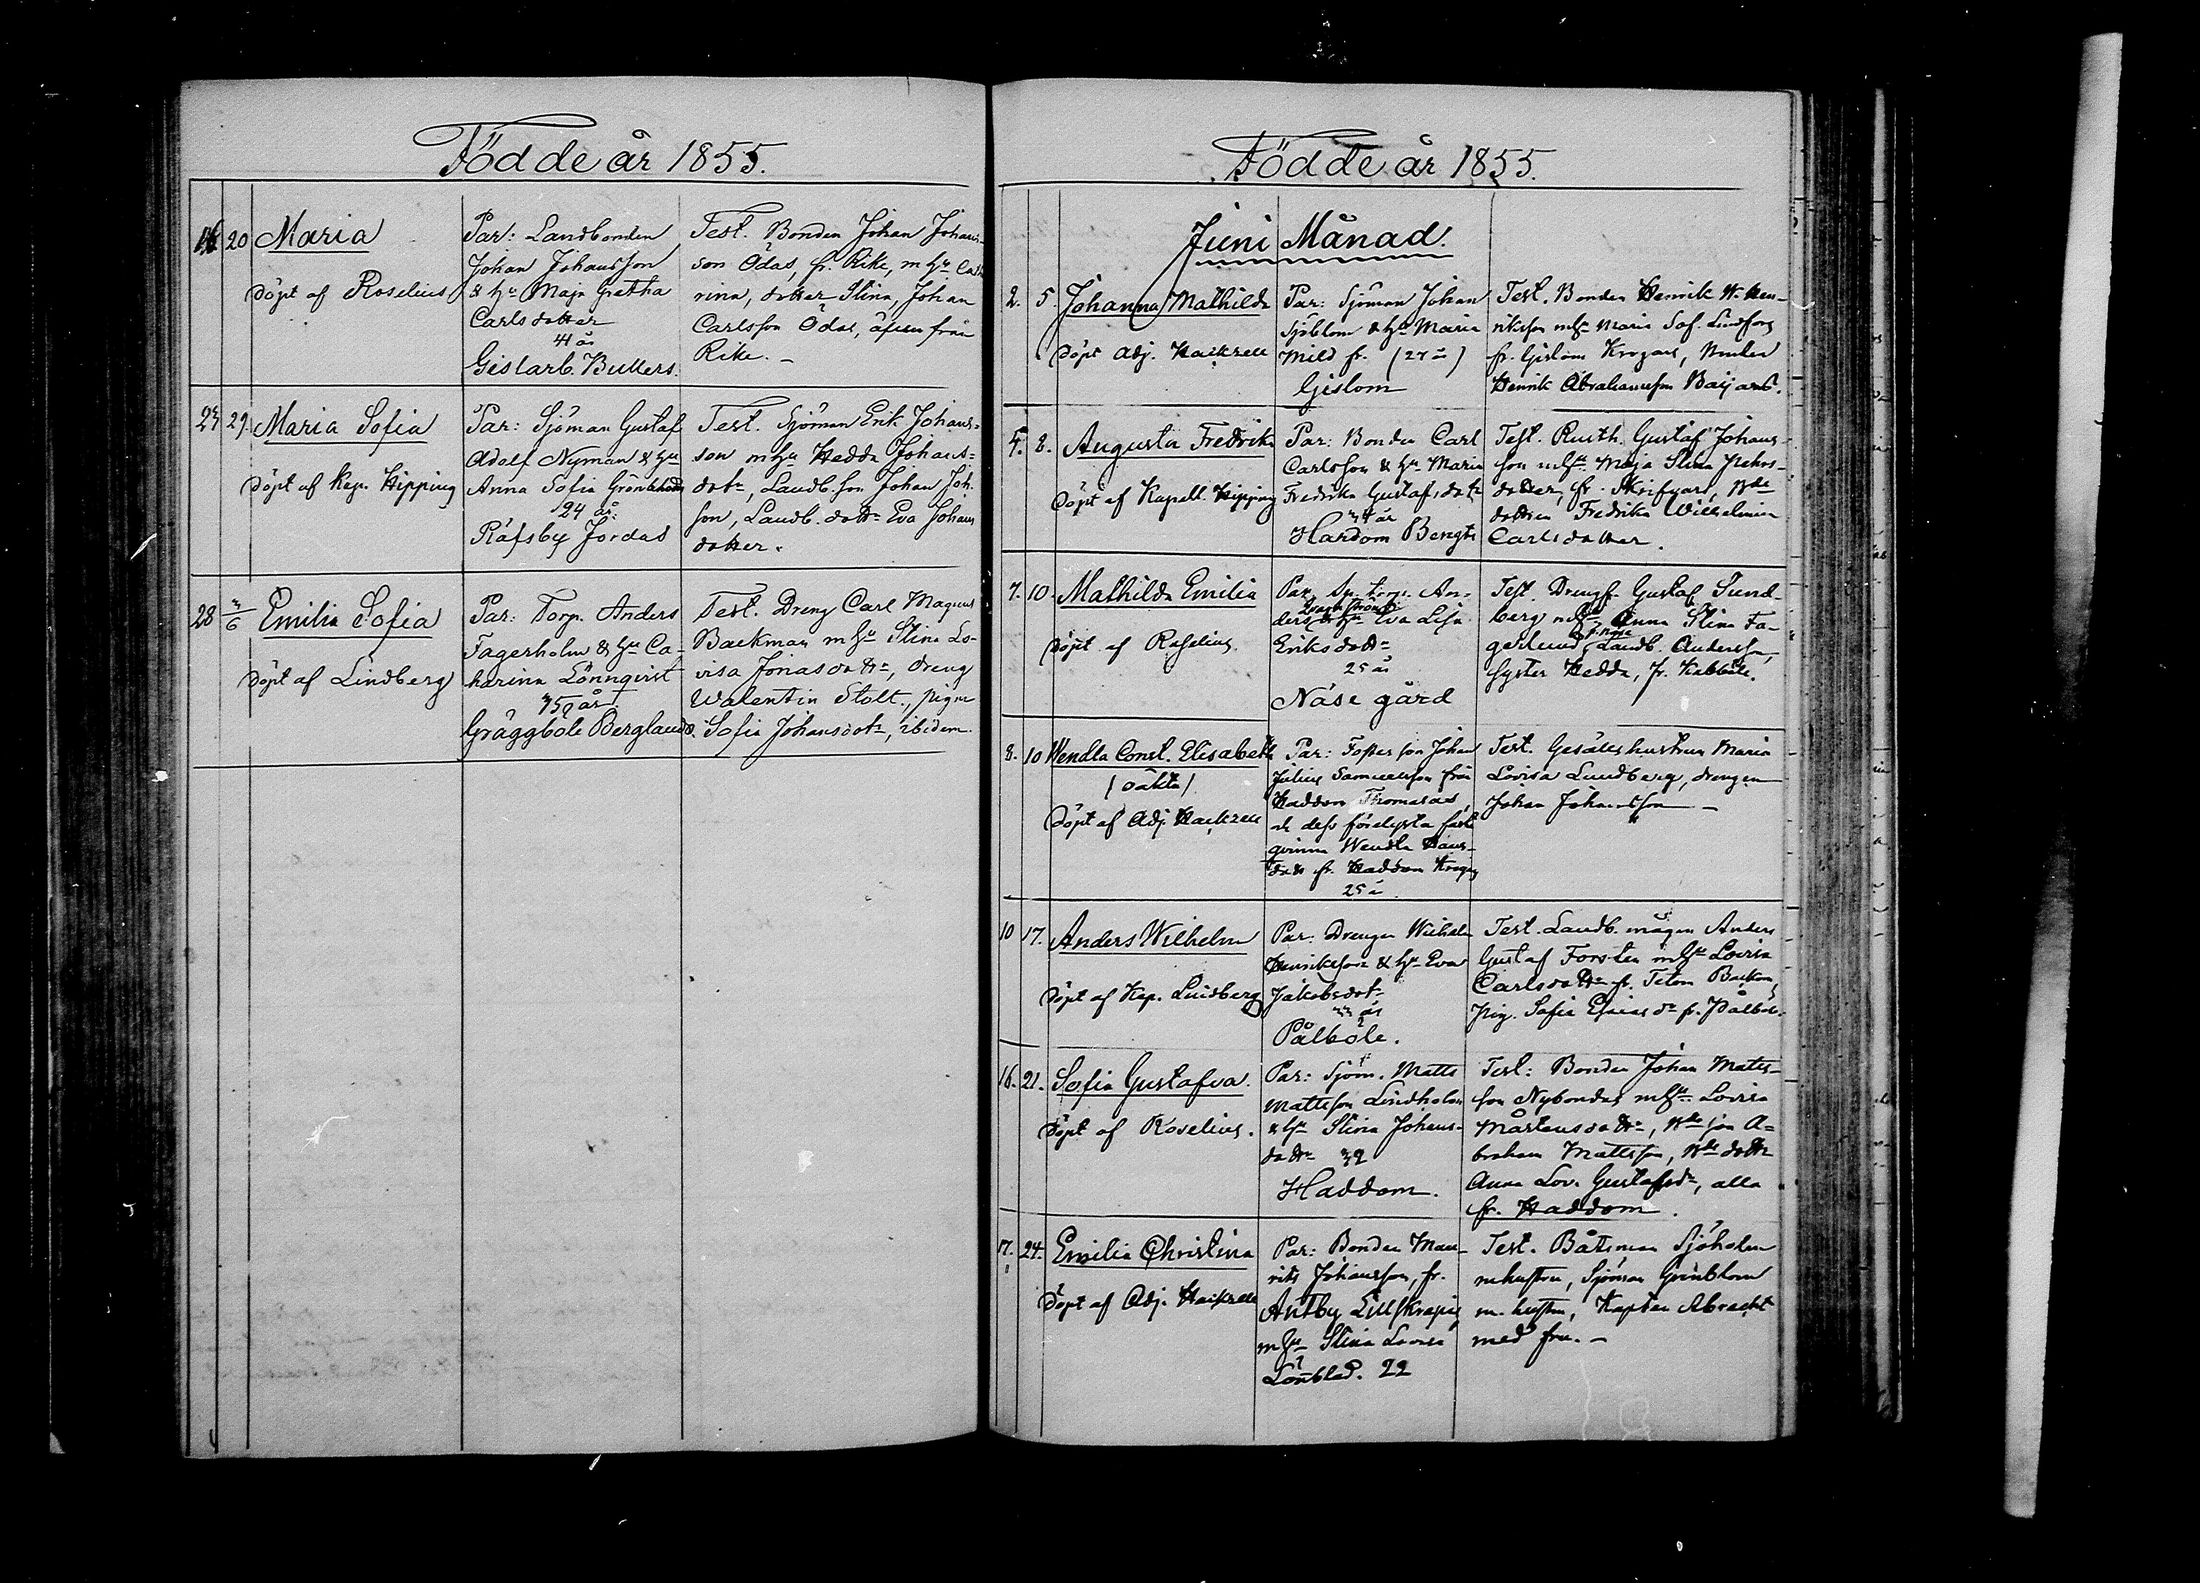 Födde år 1855.
16 20 Maria
Döpt af Roselius
Par: Landbonden
Johan Johansson
& hu Maja Gretha
Carlsdotter
41 år
Gislarb. Bullers.
Test. Bonden Johan Johans-
son Ödas, fr. Rike, m hu Cath
rina, dotter Stina, Johan
Carlsson Ödas, äfven från
Rike. –
23 29. Maria Sofia
Döpt af Kap. Hipping
Par: Sjöman Gustaf
Adolf Nyman & hu
Anna Sofia Grönholm
24 år.
Räfsby Jordas
Test. Sjöman Erik Johans-
son m hu Hedda Johans-
dotr, Landb. son Johan Joh.
son, Landb. dottr Eva Johans
dotter.
28 3/6 Emilia Sofia
Döpt af Lindberg
Par: Torp. Anders
Fagerholm & hu Ca-
harina Lönnqvist
35 år
Gräggböle Berglands.
Test. Dreng Carl Magnus
Backman m hu Stina Lo-
visa Jonasdottr, dreng
Walentin Stolt, pigan
Sofia Johansdotr, ibidem.
Födde år 1855.
Juni Månad.
2. 5. Johanna Mathilda
Döpt Adj. Hackzell
Par: Sjöman Johan
Sjöblom & hu Maria
Mild fr. (27 å)
Gislom
Test. Bonden Henrik W. Hen-
riksson m hu Maria Sof. Lindfors
fr. Gislom Krogars,
Henrik Abrahamsson Baijars.
5. 8. Augusta Fredrika
Döpt af Kapell. Hipping
Par: Bonden Carl
Carlsson & hu Maria
Fredrika Gustafsdotr
34 år
Hardom Bengts
Test. Rusth. Gustaf Johans-
son m hu Maja Stina Pehrs-
dotter, fr. Skrifvars, Bde
dottren Fredrika Wilhelmina
Carlsdotter.
7. 10. Mathilda Emilia
Döpt af Roselius.
Par. Sp. torp. An-
ders & hu Eva Lisa
Eriksdottr
25 år
Näse gård
Test. Drengs. Gustaf Sund-
berg m hu Anna Stina Fa-
gerlund fr. Näse Landb. Andersson,
Syster Hedda, fr. Kabböle.
8. 10 Wendla Const. Elisabeth
(oäkta)
Döpt af Adj Hackzell
Par: Fosterson Johan
Julius Samuelsson från
Haddom Thomasas,
och dess förelysta fäst
qvinna Wendla Hans-
dottr fr. Haddom Krogars
25 å
Test. Gesällshustrun Maria
Lovisa Lundberg, drengen
Johan Johansson –
10 17. Anders Wilhelm
Döpt af Kap. Lindberg
Par: Drengen Wilhelm
Henriksson & hu Eva
Jakobsdotr
33 år
Pålböle.
Test. Landb. mågen Anders
Gustaf Forstén m hu Lovisa
Carlsdottr fr. Tetom Backas,
pig. Sofia Esaiasdr fr. Pålböle.
16. 21. Sofia Gustafva.
Döpt af Roselius.
Par: Sjöm. Matts
Mattsson Lindholm
& hu Stina Johans-
dottr 32
Haddom.
Test: Bonden Johan Matts-
son Nybondas m hu Lovisa
Mårtensdottr, Bde son A-
braham Mattsson, Bde dottr
Anna Lov. Gustafsdr, alla
fr. Haddom.
17. 24. Emilia Christina
Döpt af Adj. Hackzell
Par: Bonden Mau-
rits Johansson, fr.
Antby Lillkrapis
m hu Stina Lovisa
Lönblad. 22
Test. Båtsman Sjöholm
m hustru, Sjöman Grönblom
m. hustru, Kapten Abrecht
med fru. –